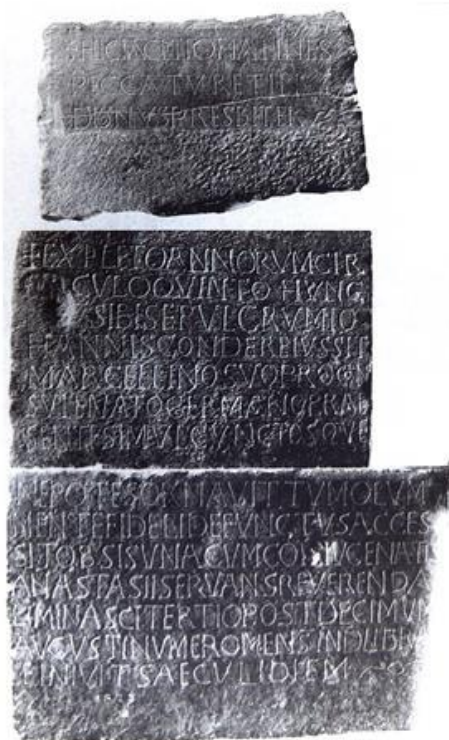 HIC IACET IOHANNES
PECCATVR ET IN
DIGNVS PRESBITER
+ EXPLETO ANNORVM CIR
CVLO QVINTO HVNC
SIBI SEPVLCRVM IO
HANNIS CONDERE IVSSIT
MARCELLINO SVO
SVLE NATO GERMANO PRAE
SENTE SIMVL CVNCTOSQVE
NEPOTES ORNAVIT TVMOLVM
MENTE FIDELI DEFVNCTVS ACCES
SIT OBSIS VNA CVM CONIVGE NATIS
ANASTASII SERVANS REVERENDA
LIMINA SCI TERTIO POST DECIMVM
AVGVSTI NVMERO MENS
FINIVIT SAECVLI DIEM